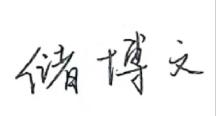 储博文